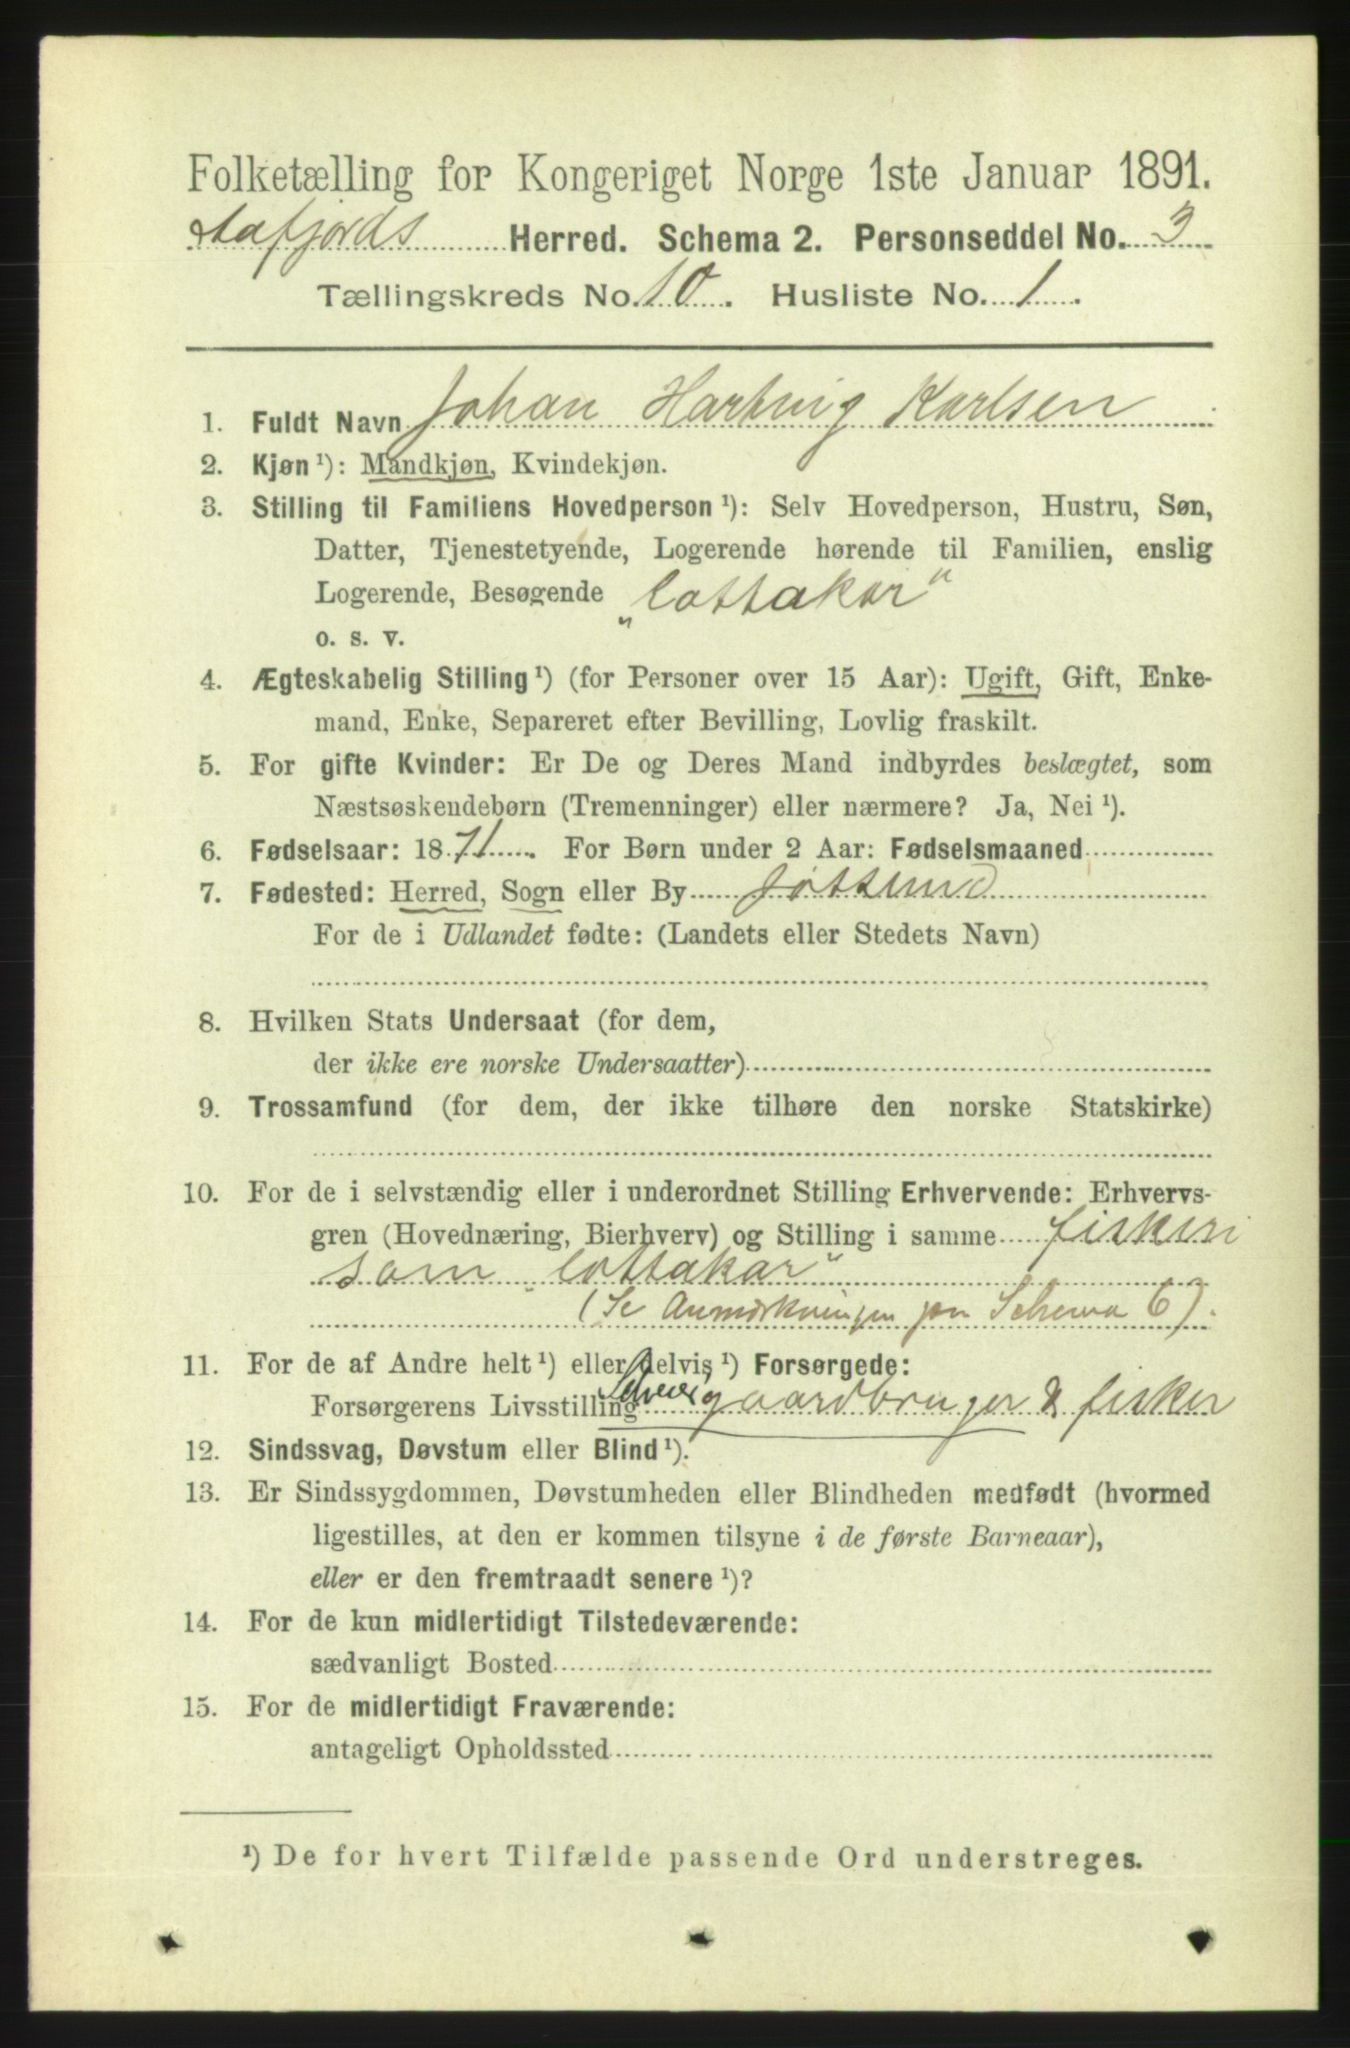 Folketælling for Kongeriget Norge 1ste Januar 1891.
Aafjords Herred. Schema 2. Personseddel No. 3
Tællingskreds No. 10. Husliste No. 1.
1. Fuldt Navn Johan Hartvig Karlsen
2. Kjøn ¹): Mandkjøn, Kvindekjøn.
3. Stilling til Familiens Hovedperson ¹): Selv Hovedperson, Hustru, Søn,
Datter, Tjenestetyende, Logerende hørende til Familien, enslig
Logerende, Besøgende „lottakar"
o. s. v.
4. Ægteskabelig Stilling ¹) (for Personer over 15 Aar): Ugift, Gift, Enke-
mand, Enke, Separeret efter Bevilling, Lovlig fraskilt.
5. For gifte Kvinder: Er De og Deres Mand indbyrdes beslægtet, som
Næstsøskendebørn (Tremenninger) eller nærmere? Ja, Nei ¹).
6. Fødselsaar: 1871. For Børn under 2 Aar: Fødselsmaaned
7. Fødested: Herred, Sogn eller By Jøssund
For de i Udlandet fødte: (Landets eller Stedets Navn)
8. Hvilken Stats Undersaat (for dem,
der ikke ere norske Undersaatter)
9. Trossamfund (for dem, der ikke tilhøre den norske Statskirke)
10. For de i selvstændig eller i underordnet Stilling Erhvervende: Erhvervs-
gren (Hovednæring, Bierhverv) og Stilling i samme fiskeri
som „lottakar"
(Se Anmærkningen paa Schema 6).
11. For de af Andre helt ¹) eller delvis ¹) Forsørgede:
Forsørgerens Livsstilling gaardbruger & fisker
12. Sindssvag, Døvstum eller Blind ¹).
13. Er Sindssygdommen, Døvstumheden eller Blindheden medfødt (hvormed
ligestilles, at den er kommen tilsyne i de første Barneaar),
eller er den fremtraadt senere ¹)?
14. For de kun midlertidigt Tilstedeværende:
sædvanligt Bosted
15. For de midlertidigt Fraværende:
antageligt Opholdssted
¹) De for hvert Tilfælde passende Ord understreges.